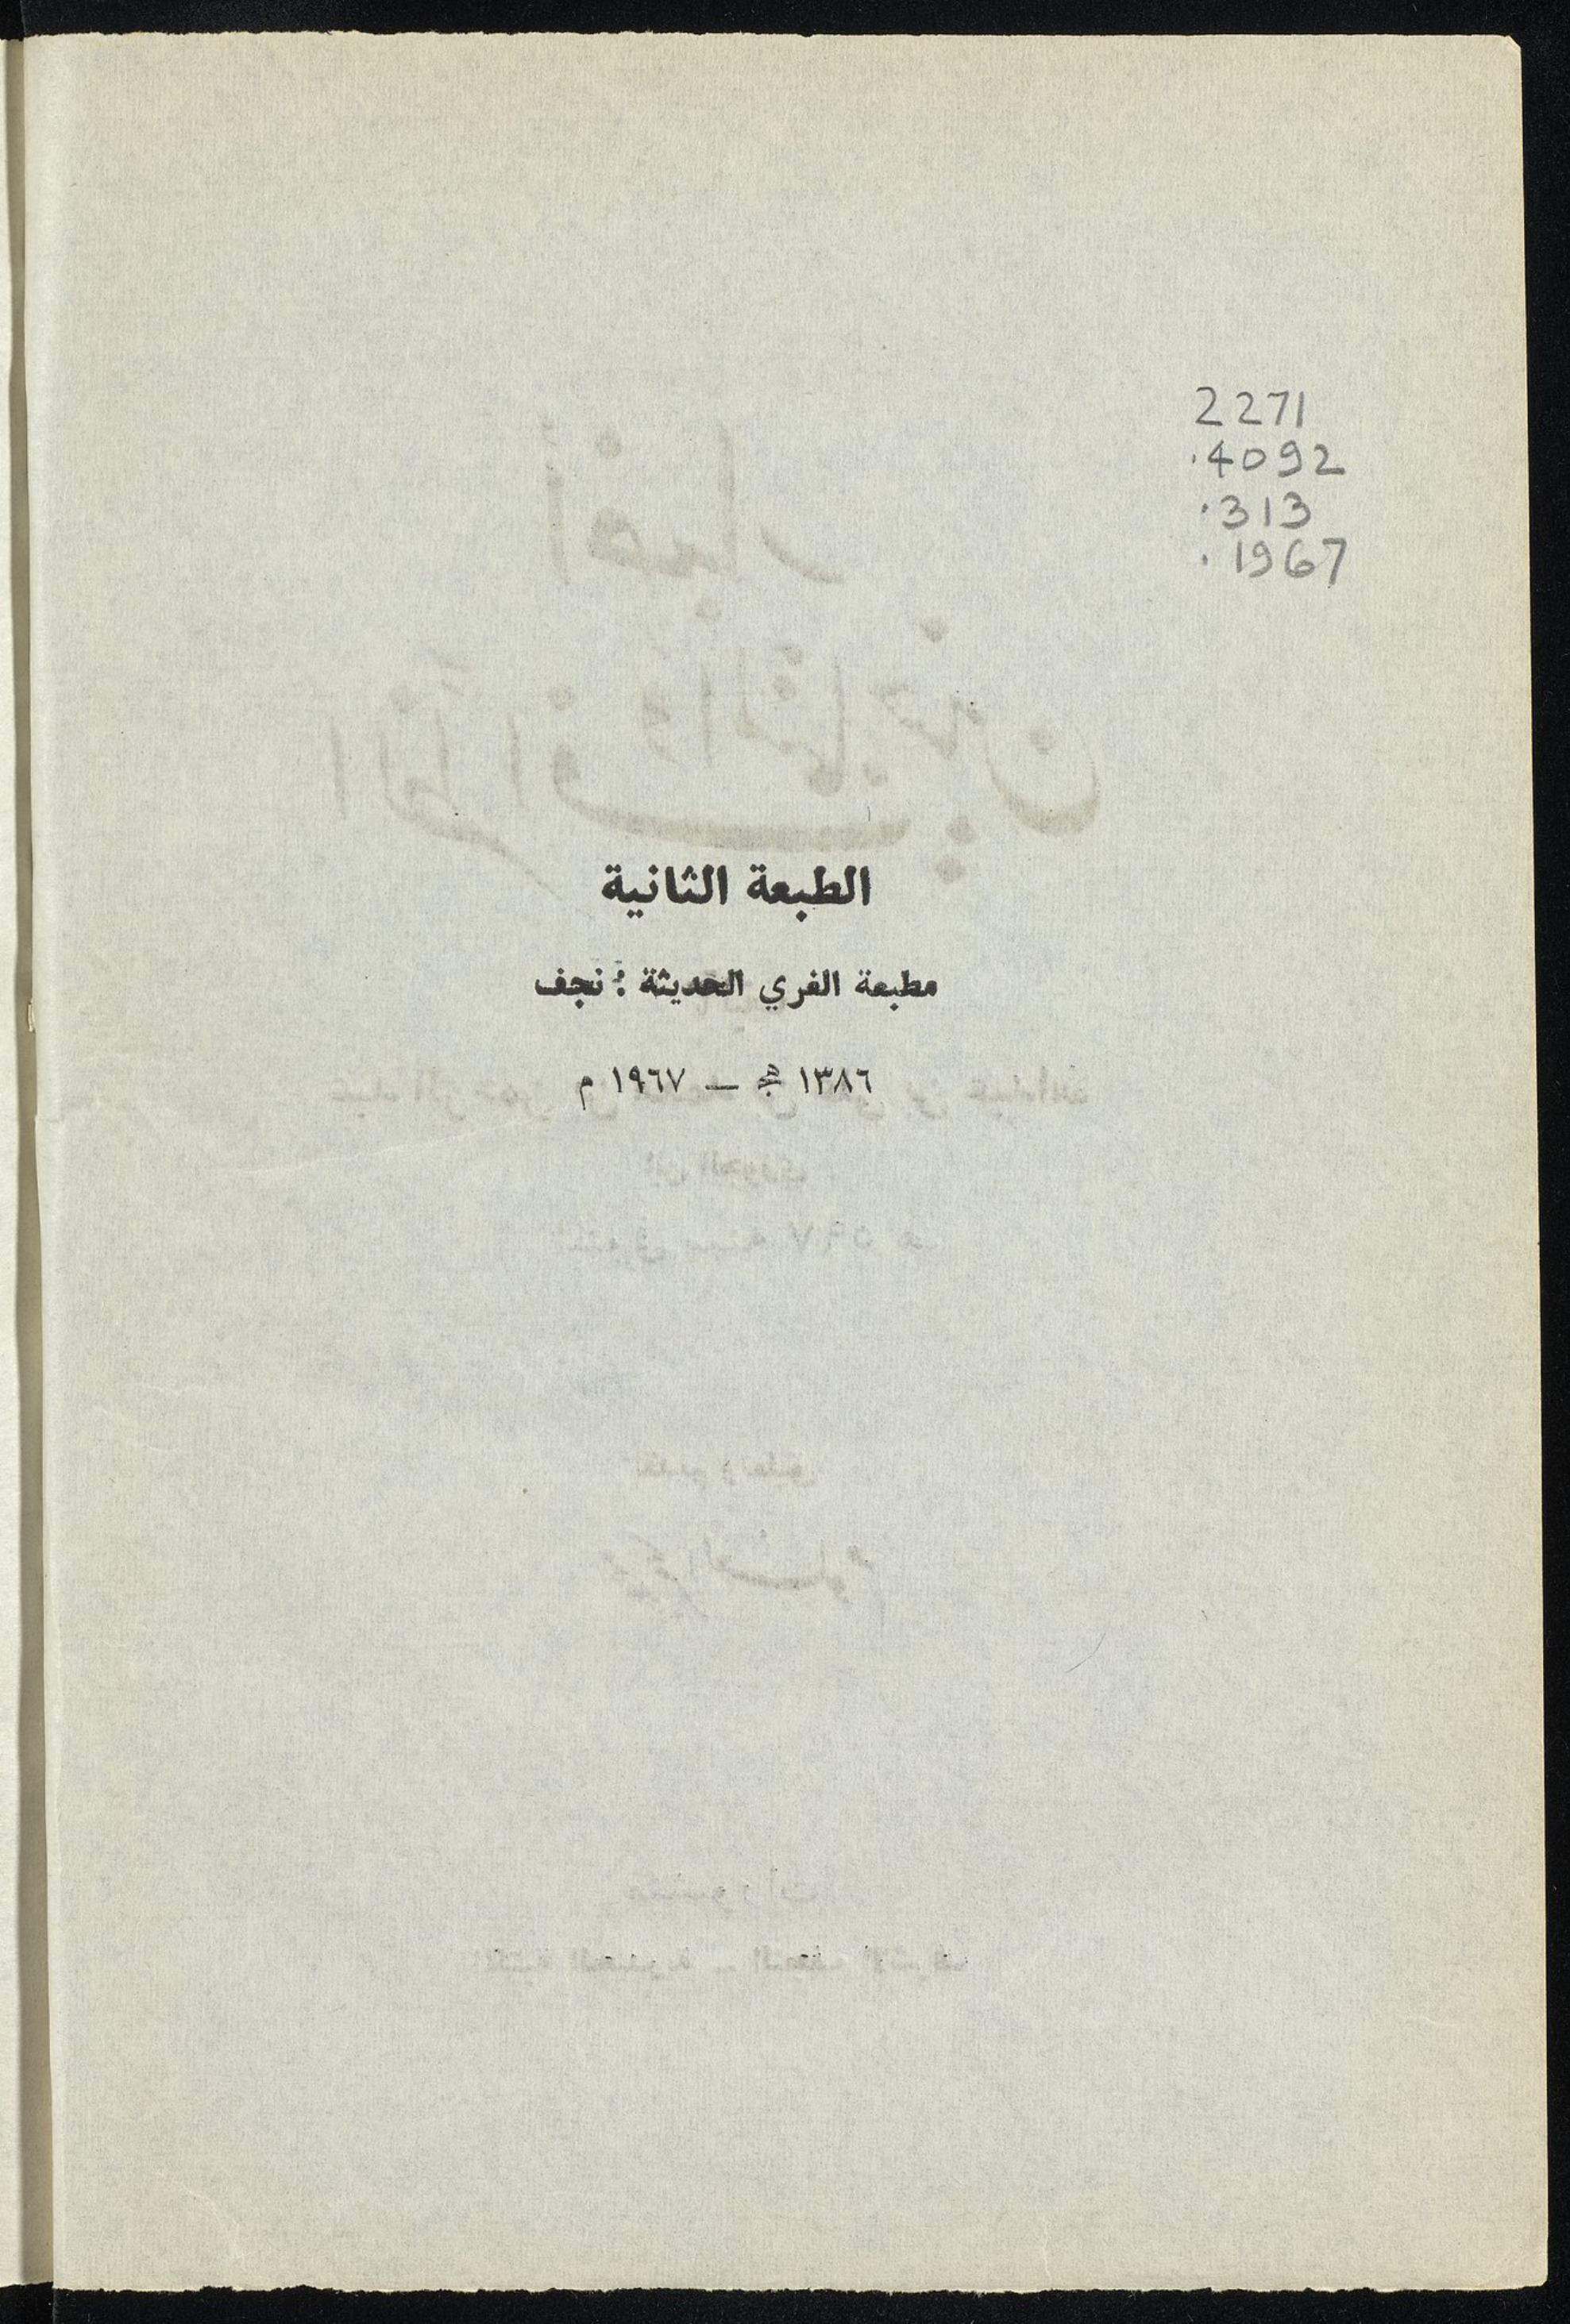 2271
.4092
.313
.1967
الطبعة الثانية
مطبعة الغري الحديثة : نجف
١٣٨٦ هج — ١٩٦٧ م